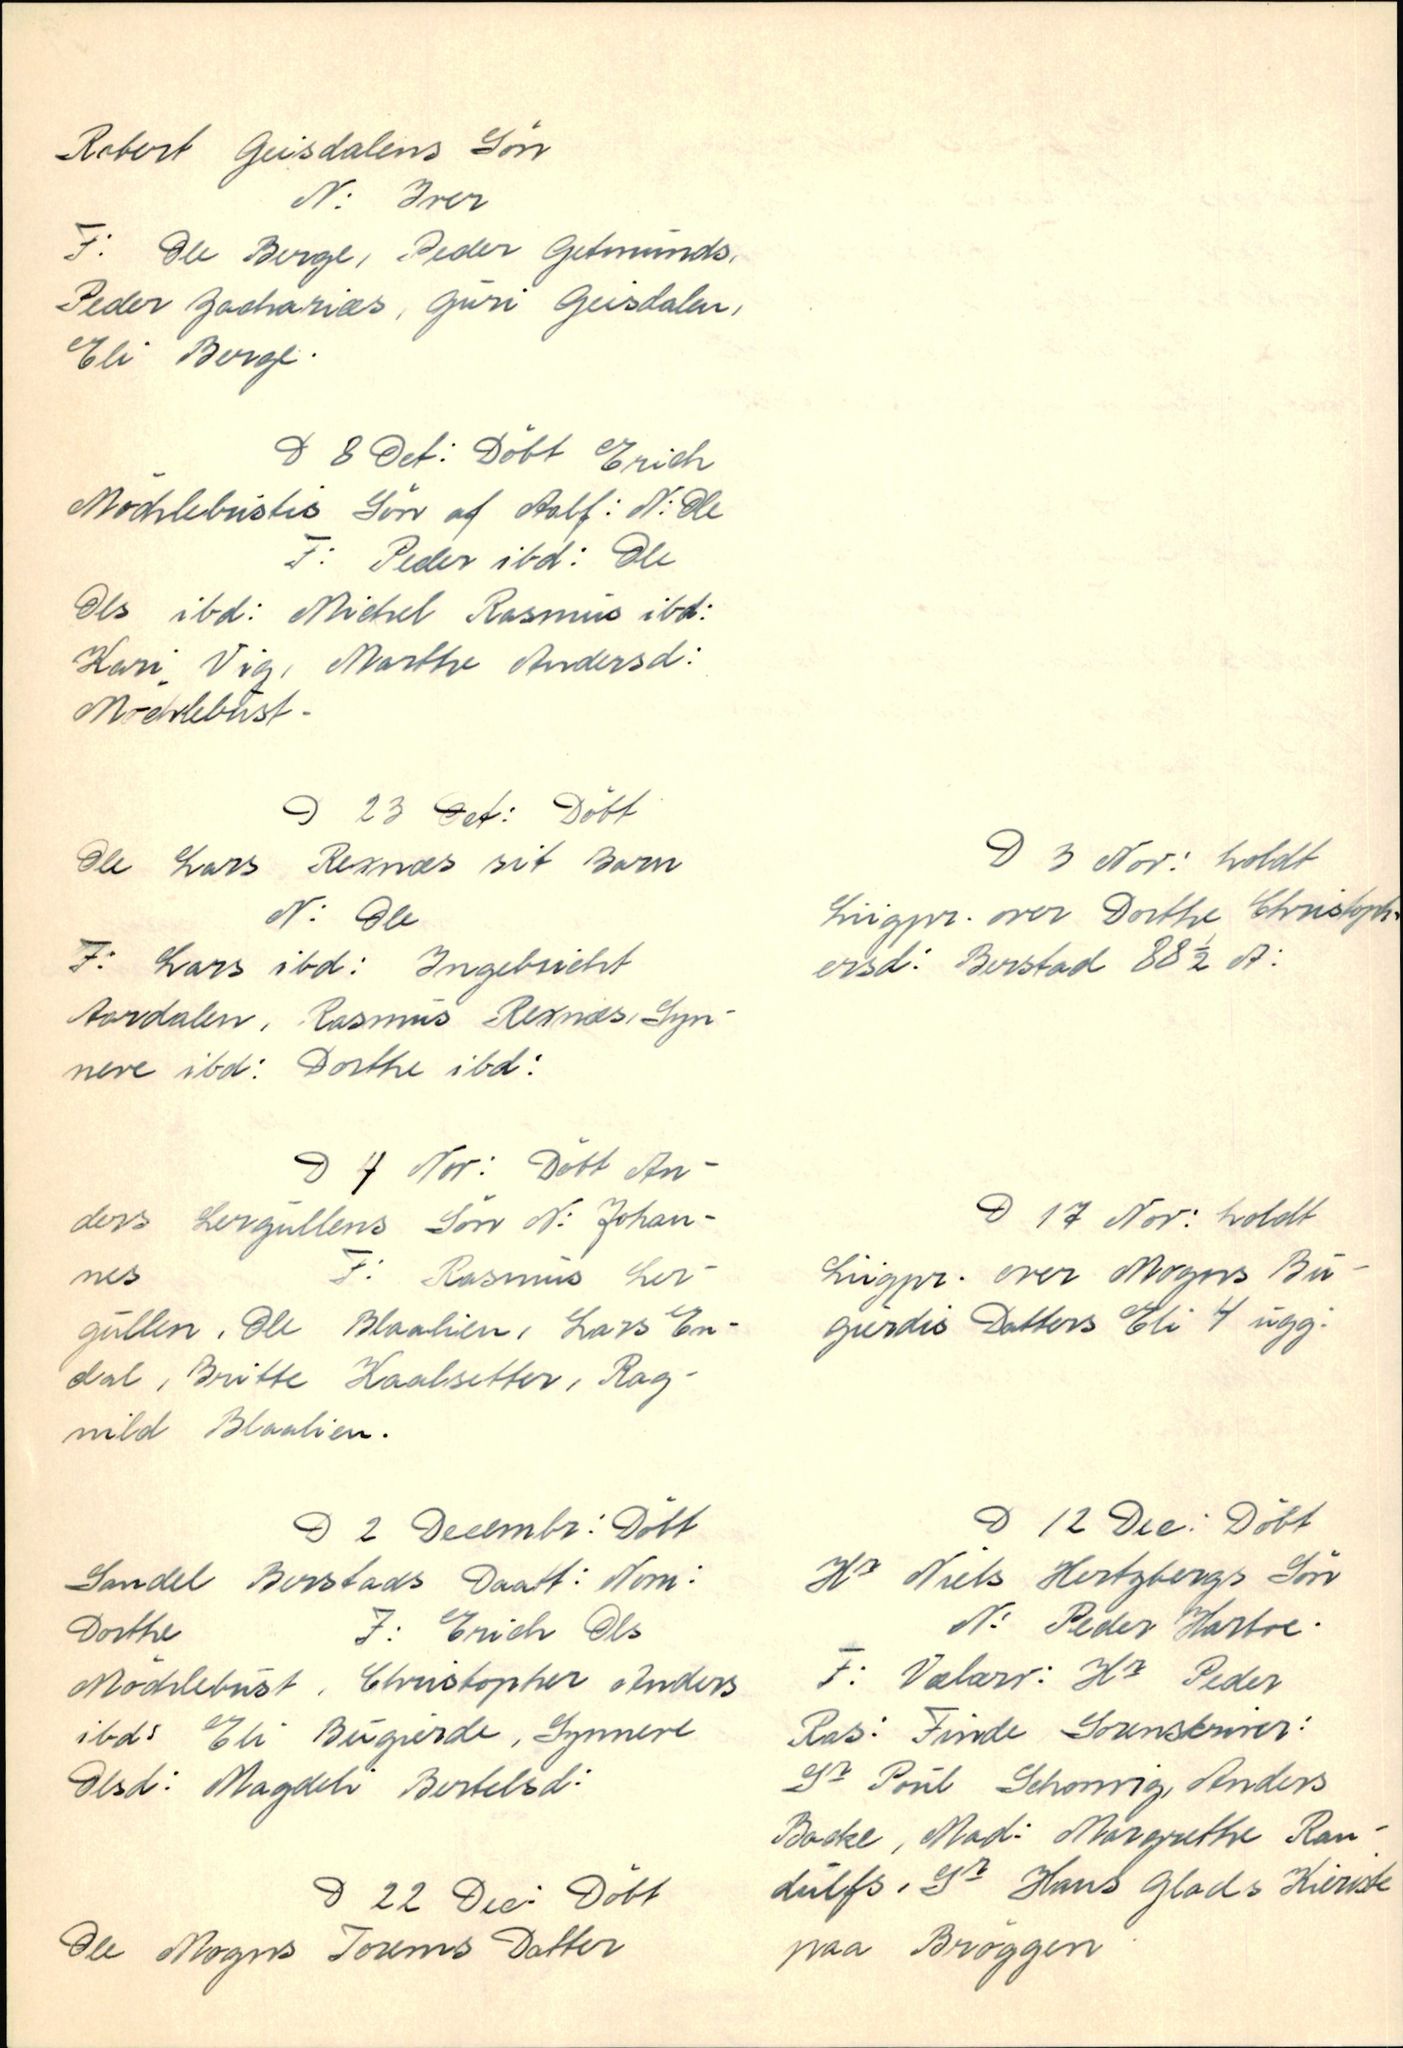 Robert Geisdalens Sön
N: Iver
F: Ole Berge, Peder Getmunds,
Peder Zacharias, Guri Geisdalen,
Eli Berge.
D 8 Oct: Döbt Erich
Möchlebustis Sön af Aalf: N: Ole
F: Peder ibd: Ole
Ols ibd: Michel Rasmus ibd:
Kari Vig, Marthe Andersd:
Möchlebust-
D 23 Oct: Döbt
Ole Lars Rexnæs sit Barn
N: Ole
F: Lars ibd: Ingebricht
Aardalen, Rasmus Rexnæs, Syn-
neve ibd: Dorthe ibd:
D 4 Nov: Döbt An-
ders Lergullens Sön N: Johan-
nes F: Rasmus Ler-
gullen, Ole Blaalien, Lars En-
dal, Britte Haalsetter, Rag-
nild Blaalien.
D 2 Decembr: Döbt
Sandel Berstads Daatt: Nom:
Dorthe F: Erich Ols
Möchlebust, Christopher Anders
ibd: Eli Bugierde, Synneve
Olsd: Magdeli Bertelsd:
D 22 Dec: Döbt
Ole Mogns Torems Datter
D 3 Nov: holdt
Liigpr. over Dorthe Christoph-
ersd: Berstad 88½ A:
D 17 Nov: holdt
Liigpr. over Mogns Bu-
gierdis Datters Eli 4 ugg:
D 12 Dec: Döbt
Hr Niels Hertzbergs Sön
N: Peder Harboe.
F: Velærv: Hr Peder
Ras: Finde Sorenskriver:
Sr Poul Schonvig, Anders
Backe, Mad: Margrethe Ran-
dulfs, Sr Hans Glads Kieriste
paa Bröggen